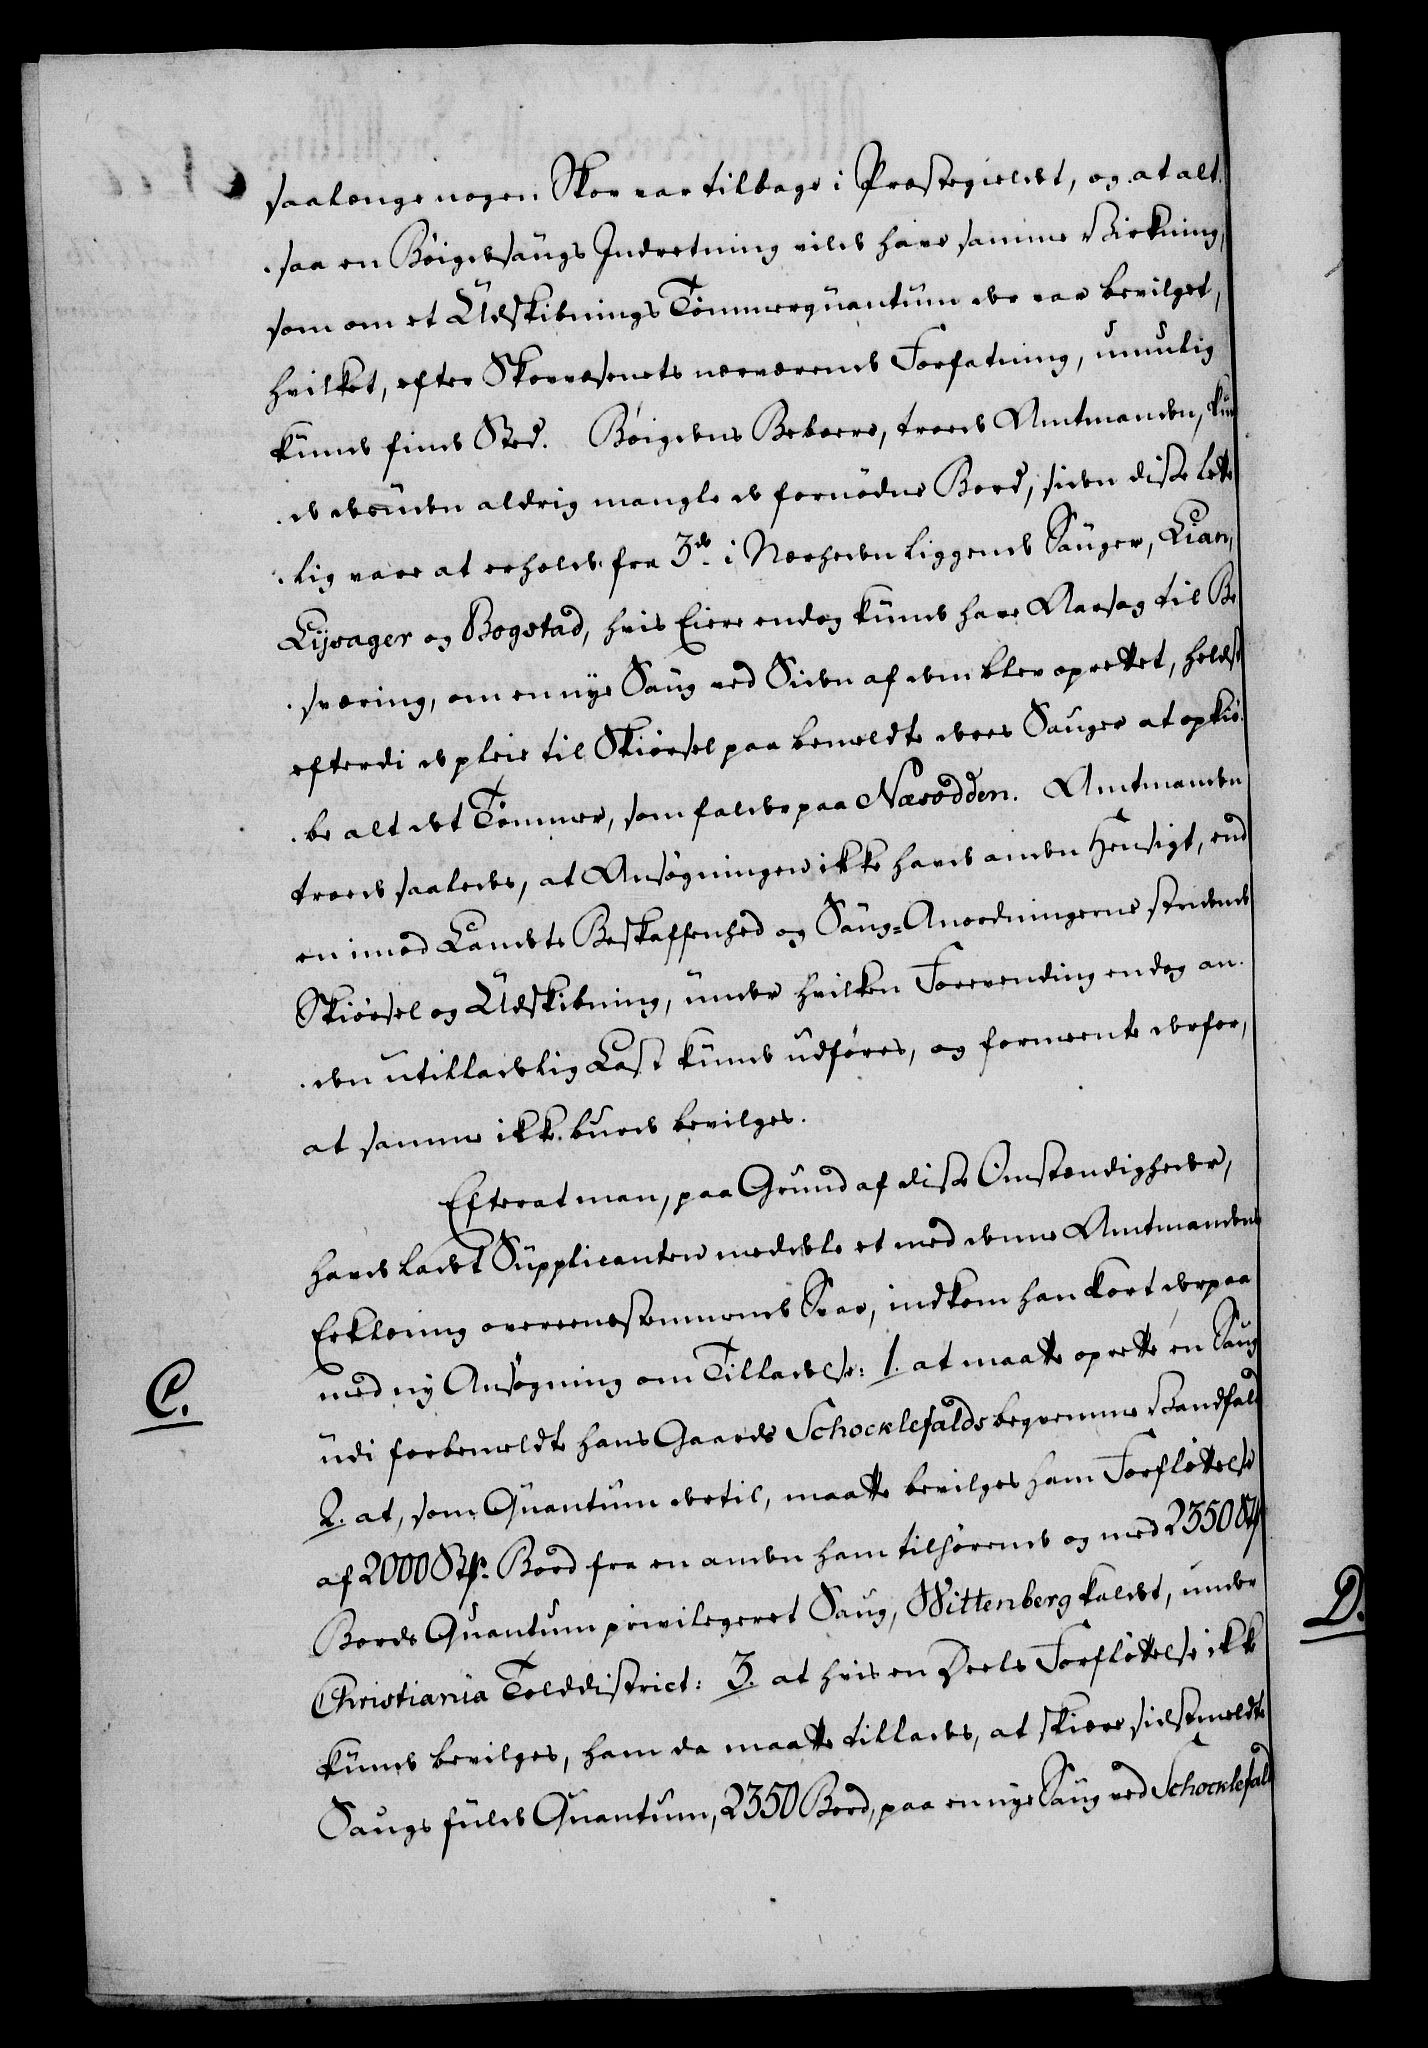 saalænge nogen Skov var tilbage i Præstegieldet, og at alt-
-saa en Bøigdesaugs Indretning vilde have samme Virkning,
som om et Udskibnings Tømmerquantum der var bevilget,
hvilket, efter Skovvæsenets nærværende Forfatning, umulig
kunde finde Sted. Bøigdens Beboere, troede Amtmanden, kun-
-de desuden aldrig mangle de fornødne Bord, siden disse lette-
-lig vare at erholde fra 3de i Nærheden liggende Sauger, Lian,
Lysager og Bogstad, hvis Eiere endog kunde have Aarsag til Be-
-sværing, om en nye Saug ved Siden af dem blev oprettet, heldst
efterdi de pleie til Skiørsel paa bemeldte deres Sauger at opkiø-
-be alt det Tømmer, som falder paa Næsodden. Amtmanden
troede saaledes, at Ansøgningen ikke havde anden Hensigt, end
en imod Landets Beskaffenhed og Saug-Anordningerne stridende
Skiørsel og Udskibning, under hvilken Forevending endog an-
-den utilladelig Last kunde udføres, og formeente derfor,
at samme ikke burde bevilges.
Efterat man, paa Grund af disse Omstændigheder,
havde ladet Supplicanten meddele et med denne Amtmandens
Erklæring overeensstemmende Svar, indkom han kort derpaa
C.
med ny Ansøgning om Tilladelse: 1. at maatte oprette en Saug
udi forbemeldte hans Gaards Schocklefalds beqvemme Vandfald
2. at, som Quantum dertil, maatte bevilges ham Forfløttelse
af 2000 Stk. Bord fra en anden ham tilhørende og med 2350 Stk
Bords Quantum privilegeret Saug, Wittenberg kaldet, under
Christiania Tolddistrict: 3. at hvis en Deels Forfløttelse ikke
D.
kunde bevilges, ham da maatte tillades, at skiære sidstmeldte
Saugs fulde Quantum, 2350 Bord, paa en nye Saug ved Schocklefald